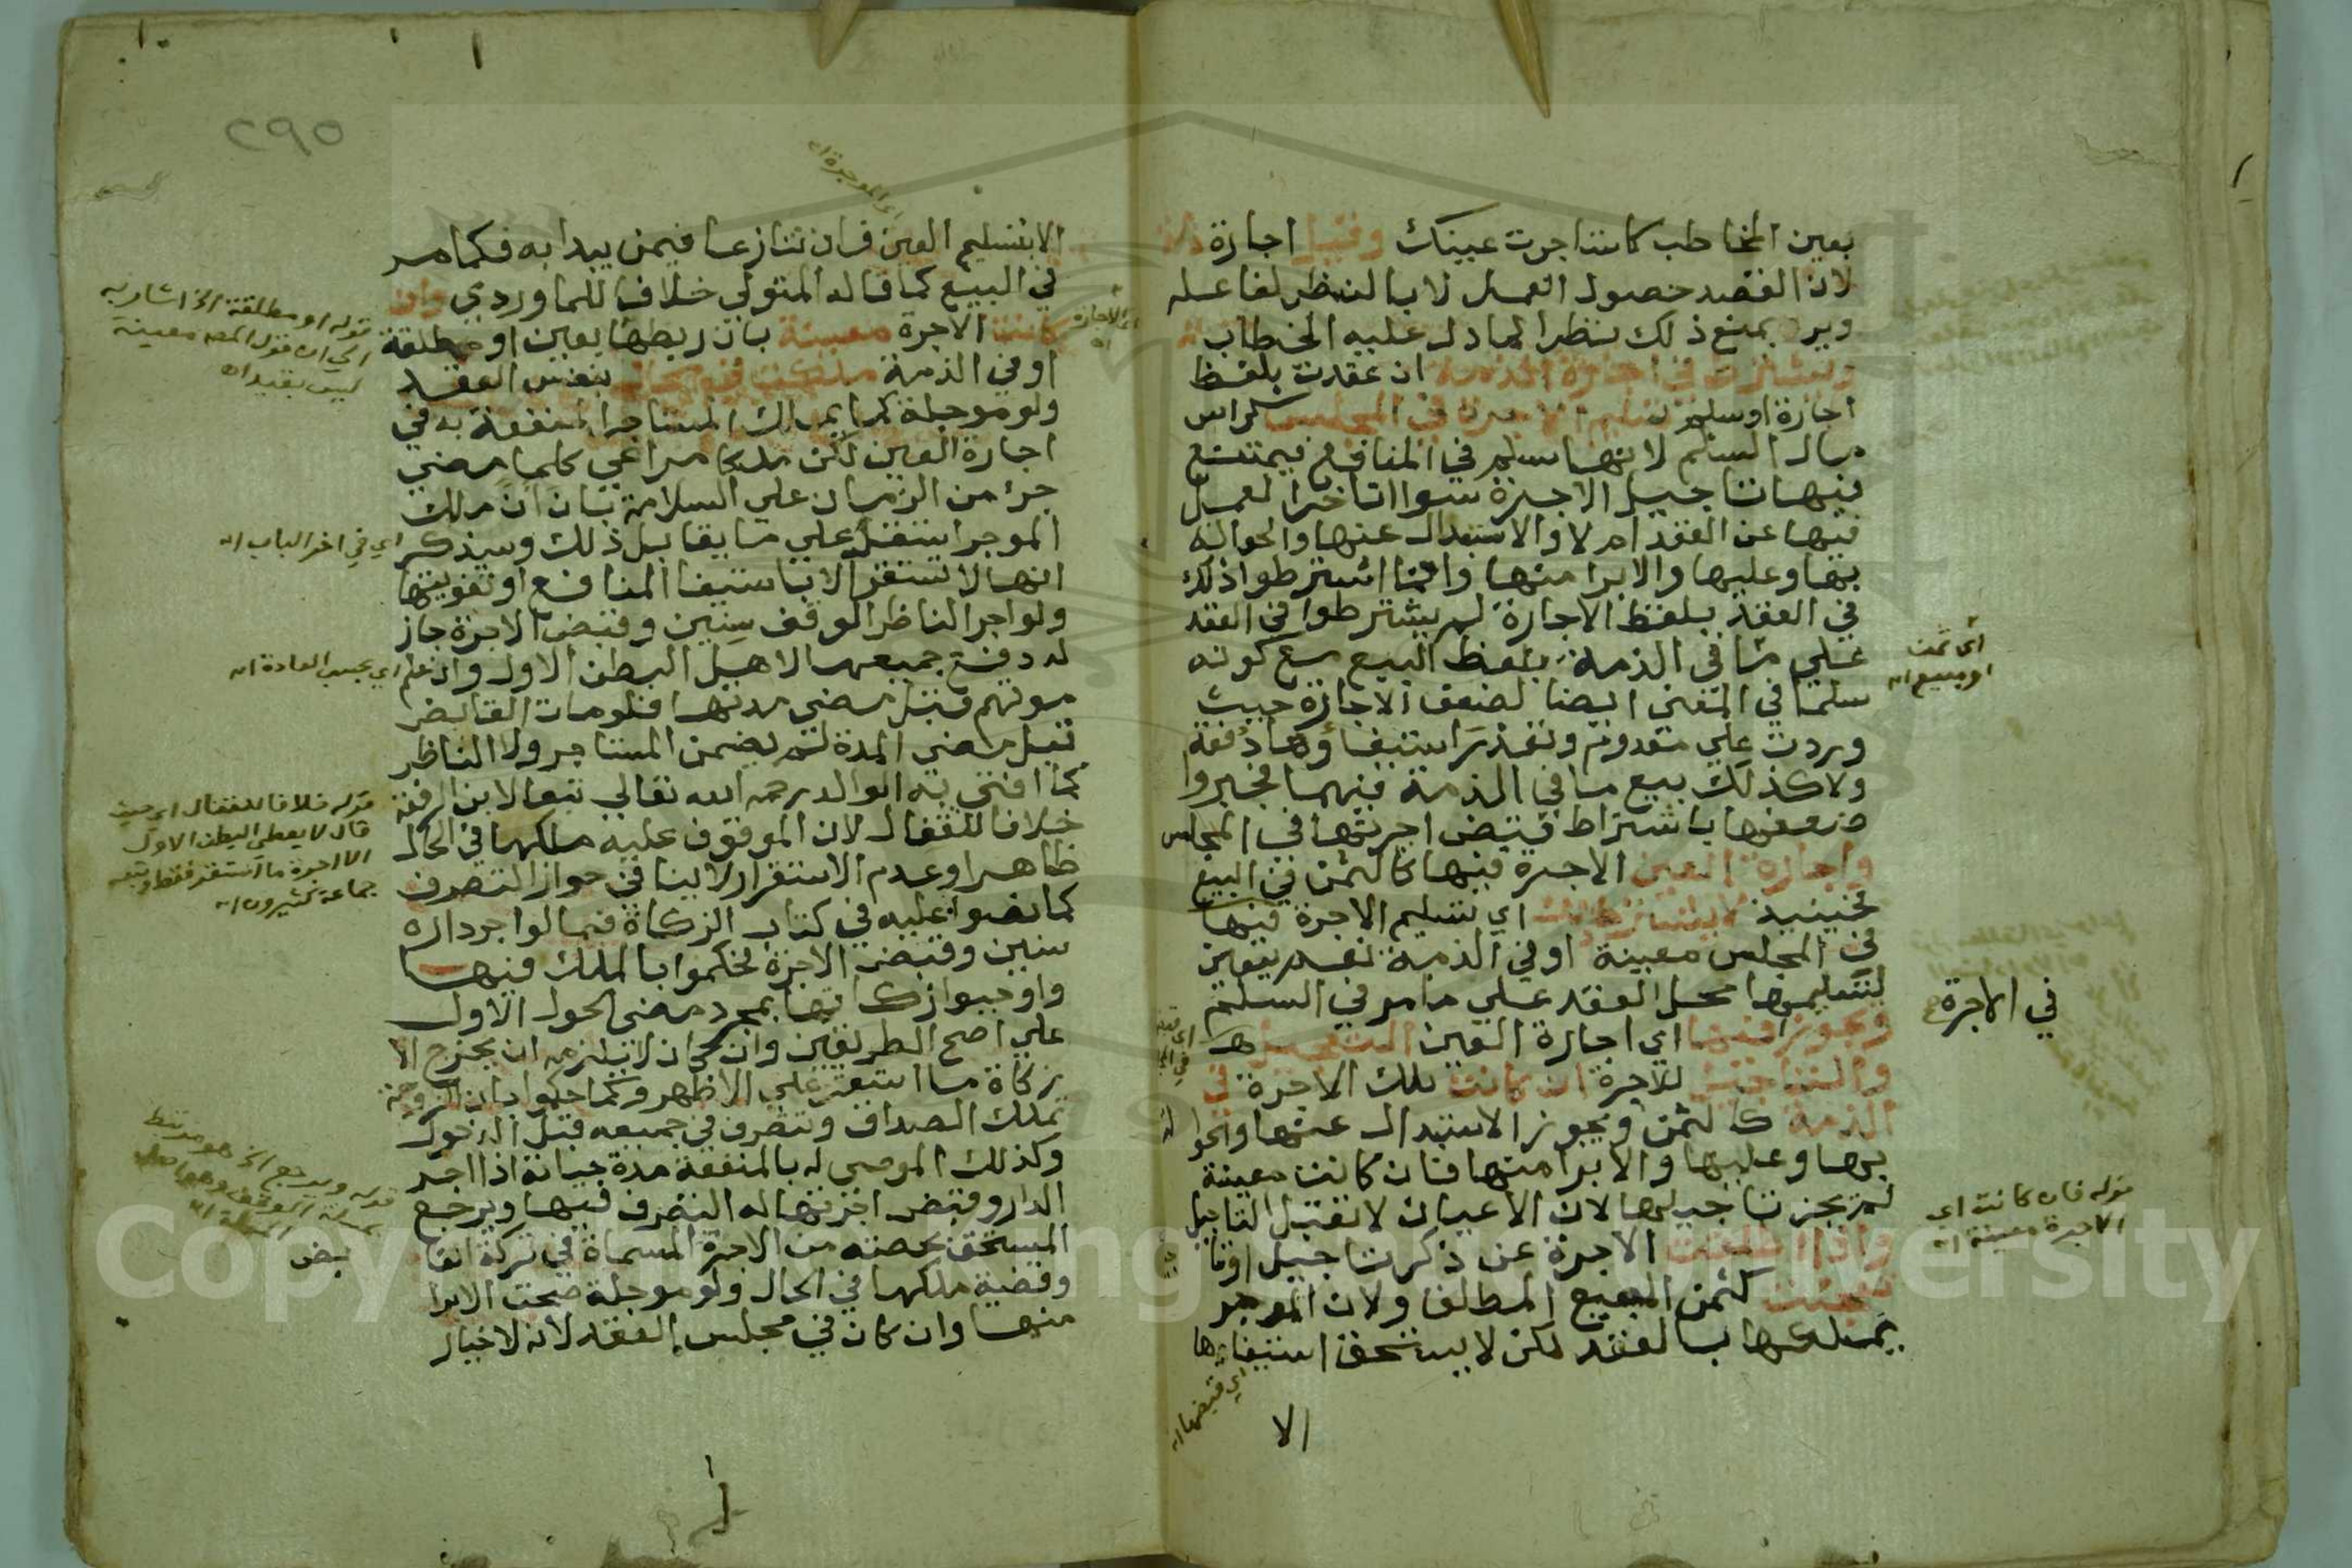 بعين المخاطب كاستاجرت عينك وقيل اجارة ذمة
لان القصد حصول العمل لا بالنظر لفاعله
ويرد بمنع ذلك نظرا لما دل عليه الخطاب
ويشترط في اجارة الذمة ان عقدت بلفظ
اجارة او سلم تسليم الاجرة في المجلس كراس
مال السلم لانها سلم في المنافع فيمتنع
فيها تاجيل الاجرة سواا تاخر العمل
فيها عن العقد ام لا والاستبدال عنها والحوالة
بها وعليها والابرا منها وانما اشترطوا ذلك
في العقد بلفظ الاجارة لم يشترطوا في العقد
علي ما في الذمة بلفظ البيع مع كونه
سلما في المعني ايضا لضعف الاجارة حيث
وردت علي معدوم وتعذر استيفاؤها دفعة
ولا كذلك بيع ما في الذمة فيهما فجبروا
ضعفها باشتراط قبض اجرتها في المجلس
واجارة العين الاجرة فيها كالثمن في البيع
فحينيذ لا يشترط ذلك اي تسليم الاجرة فيها
في المجلس معينة او في الذمة نعم يتعين
لتسليمها محل العقد علي ما مر في السلم
ويجوز فيها اي اجارة العين التعجيل
والتاجيل للاجرة ان كانت تلك الاجرة في
الذمة كالثمن ويجوز الاستبدال عنها والحوالة
بها وعليها والابرا منها فان كانت معينة
لم يجز تاجيلها لان الاعيان لا تقبل التاجيل
واذا اطلقت الاجرة عن ذكر تاجيل او
تعجلت كثمن المبيع المطلق ولان الموجر
يملكها بالعقد لكن لا يستحق استيفاءها
الا
اي قبضها اه
اي ثمن
او مبيع اه
في الاجرة
قوله فان كانت اي
الاجرة معينة اه
٢٩٥
اي الموجرة اه
الا بتسليم العين فان تنازعا فيمن يبدا به فكما مر
في البيع كما قاله المتولي خلافا للماوردي وان
كانت الاجرة معينة بان ربطها بعين او مطلقة
او في الذمة ملكت في الحال بنفس العقد
ولو موجلة كما يملك المستاجر المنفعة به في
اجارة العين لكن ملكا مراعي كلما مضي
جزء من الزمان علي السلامة بان ان ملك
الموجر استقر علي ما يقابل ذلك وسيذكر
انها لا تستقر الا باستيفا المنافع او تفويتها
ولو اجر الناظر الوقف سنين وقبض الاجرة جاز
له دفع جميعها لاهل البطن الاول وان علم
موتهم قبل مضي مدتها فلو مات القابض
قبل مضي المدة لم يضمن المستاجر ولا الناظر
كما افتي به الوالد رحمه الله تعالي تبعا لابن الرفعة
خلافا للقفال لان الموقوف عليه ملكها في الحال
ظاهرا وعدم الاستقرار لا ينافي جواز التصرف
كما نصوا عليه في كتاب الزكاة فيما لو اجر داره
سنين وقبض الاجرة فحكموا بالملك فيها
واوجبوا زكاتها بمجرد مضي الحول الاول
علي اصح الطريقين وان كان لا يلزمه ان يخرج الا
زكاة ما استقر علي الاظهر وكما حكموا بان الزوجة
تملك الصداق وتتصرف في جميعه قبل الدخول
وكذلك الموصي له بالمنفعة مدة حياته اذا اجر
الدار وقبض اجرتها له التصرف فيها ويرجع
المستحق بحصته من الاجرة المسماة في تركة القا
بض
وقضية ملكها في الحال ولو موجلة صحت الابرا
منها وان كان في مجلس العقد لانه لا خيار
اي الاجارة اه
قوله او مطلقة الخ اشار به
الي ان قول المص معينة
ليس بقيد اه
اي في اخر الباب اه
اي بحسب العادة اه
قوله خلافا للقفال اي حيث
قال لا يعطي البطن الاول
الا اجرة ما استقر فقط وتبعه
جماعة كثيرون اه
قوله ويرجع الخ هو مرتبط
بمسئلة الوقف
Copy University